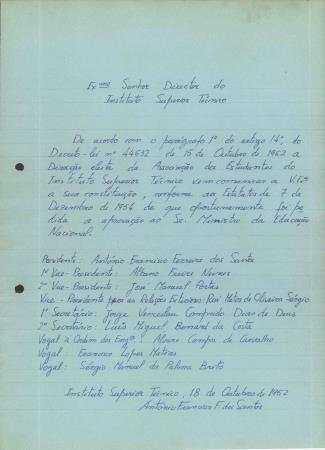 Exmo Senhor Director do
Instituto Superior Técnico
De acordo com o parágrafo 1º do artigo 14º, do
Decreto-lei nº 44632 de 15 de Outubro de 1962 a
Direcção eleita da Associação dos Estudantes do
Instituto Superior Técnico vem comunicar a V. Exª
a sua constituição, conforme os Estatutos de 7 de
Dezembro de 1954 de que oportunamente foi pe
dida a aprovação ao Sr. Ministro da Educação
Nacional.
Presidente: António Francisco Ferreira dos Santos
1º Vice-Presidente: Albano Freire Nunes
2º Vice-Presidente: José Manuel Peças
Vice-Presidente para as Relações Exteriores: Rui Matos de Oliveira Sérgio
1º Secretário: Jorge Venceslau Comprido Dias de Deus
2º Secretário: Luís Miguel Bernard da Costa
Vogal à Ordem dos Engos: Álvaro Campos de Carvalho
Vogal: Francisco Lopes Matias
Vogal: Sérgio Manuel da Palma Brito
Instituto Superior Técnico, 18 de Outubro de 1962
António Francisco F. dos Santos